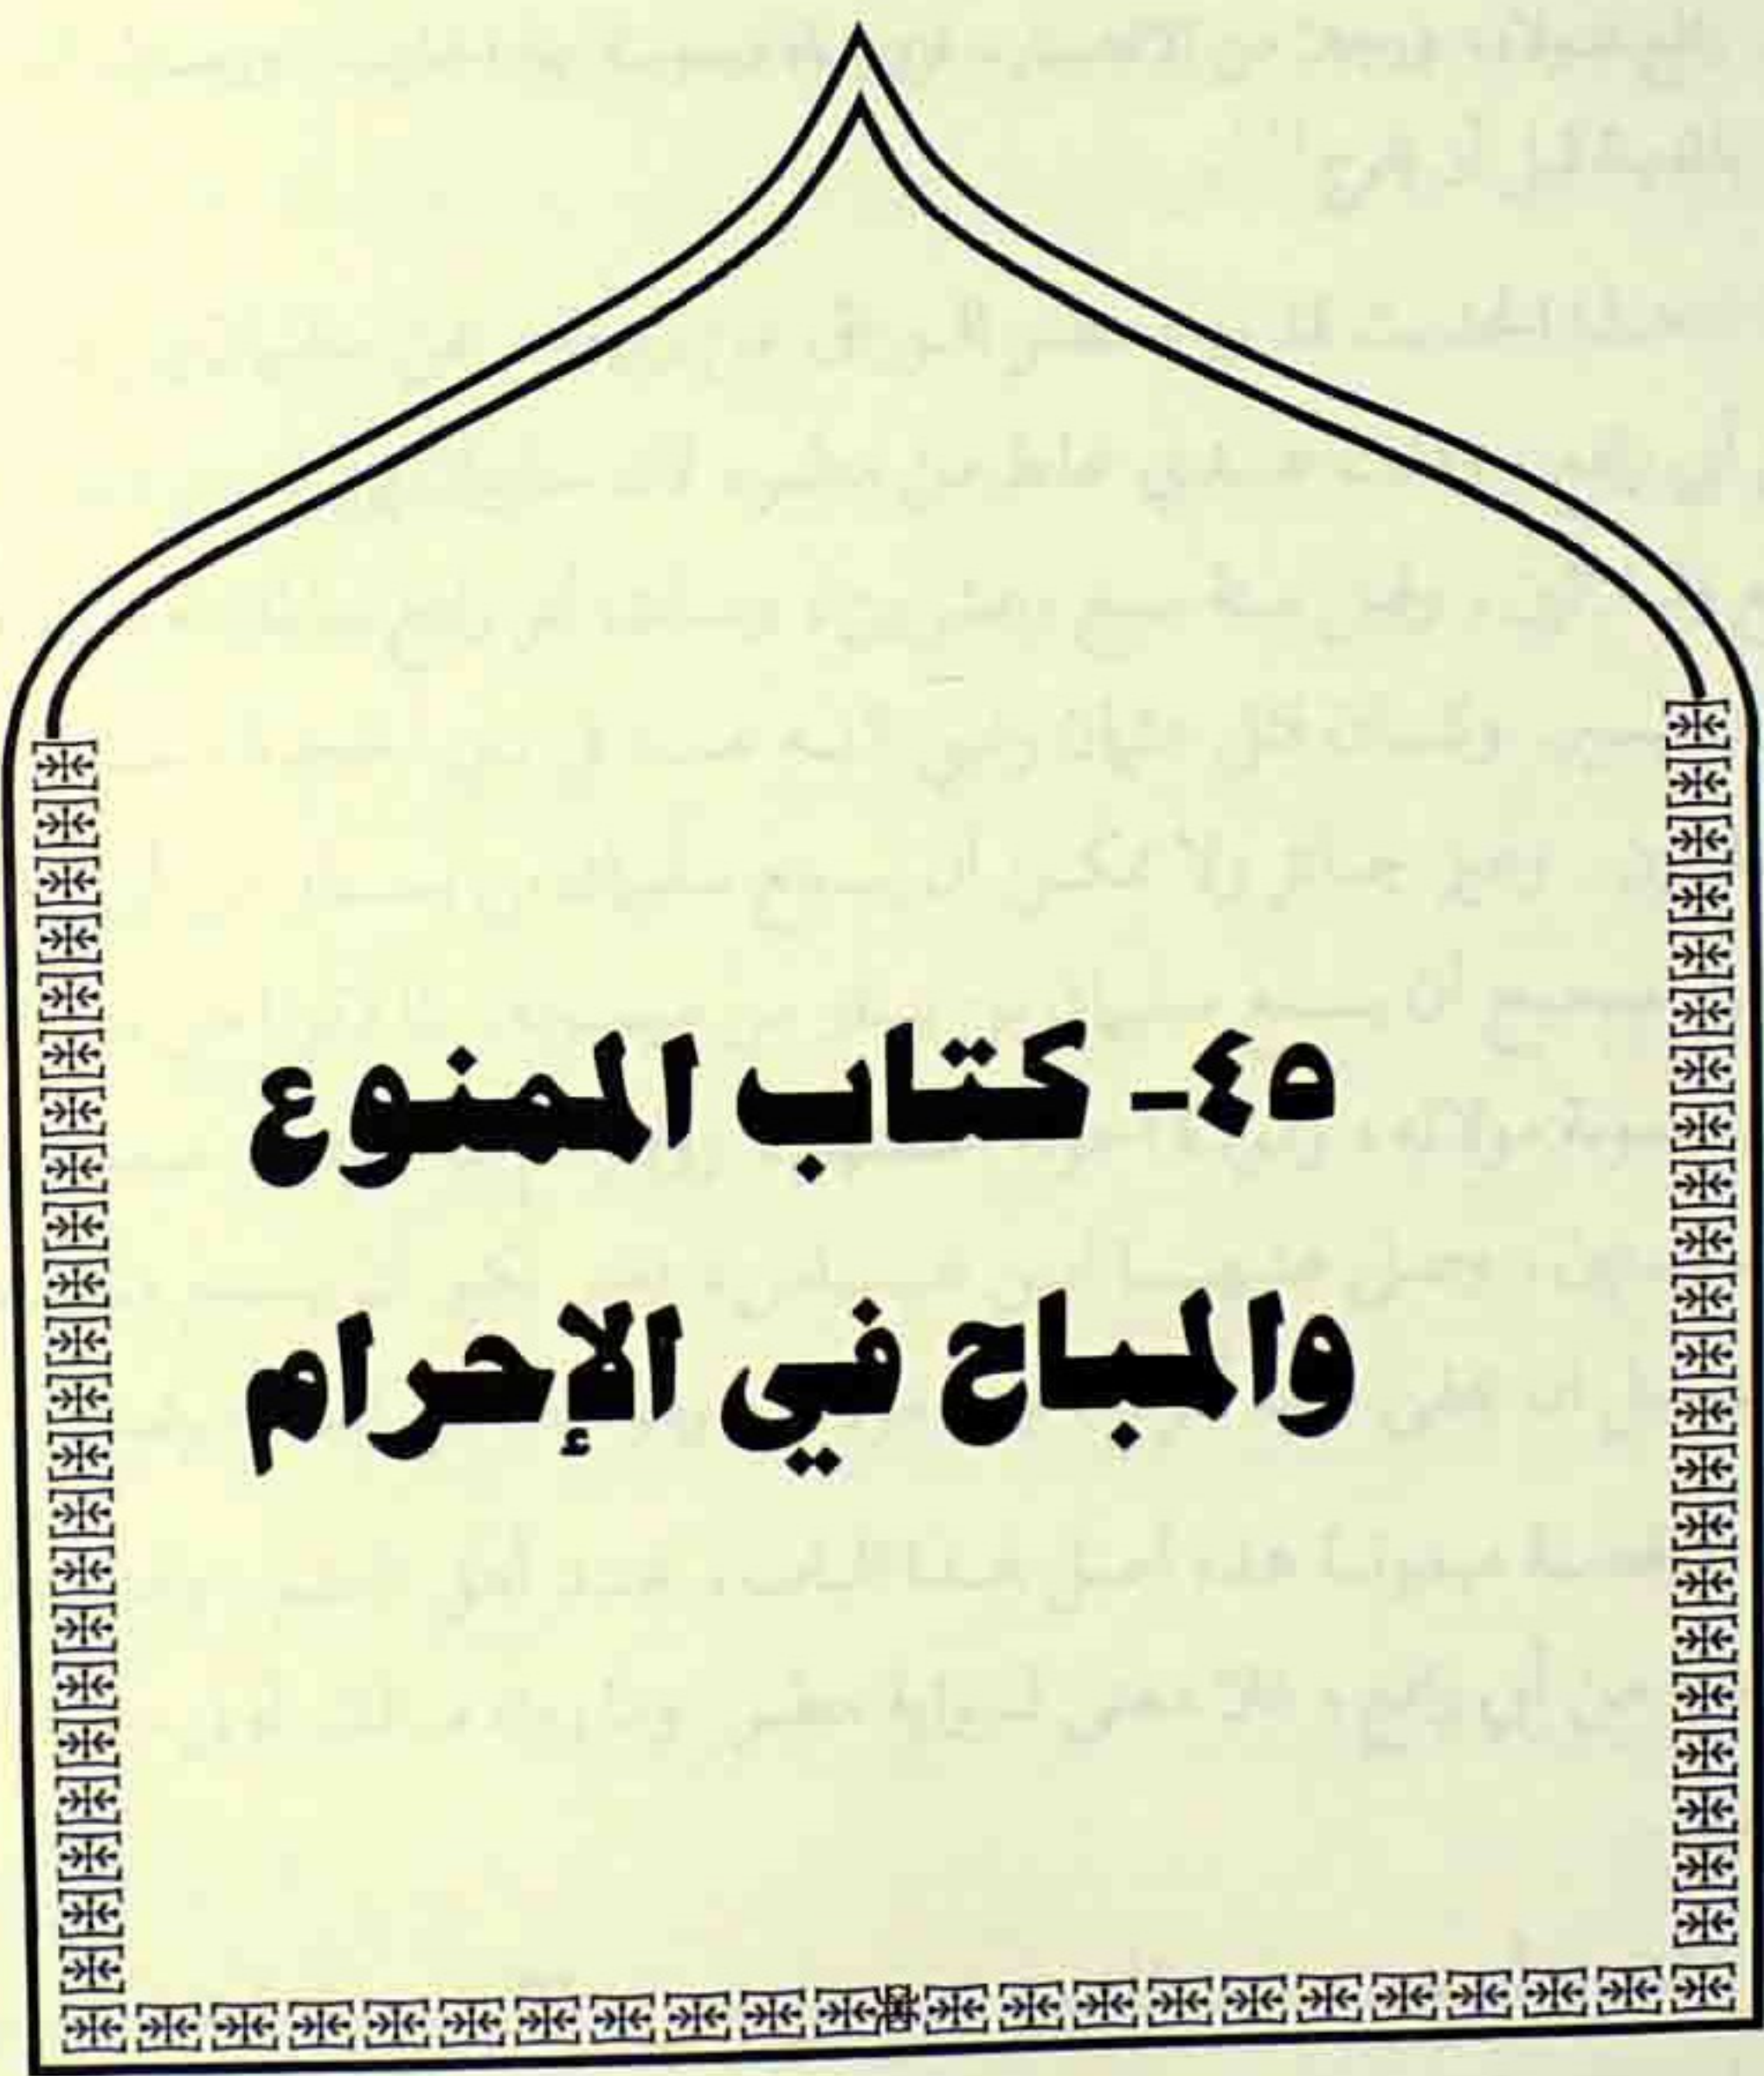 ٤٥- كتاب الممنوع
والمباح في الإحرام